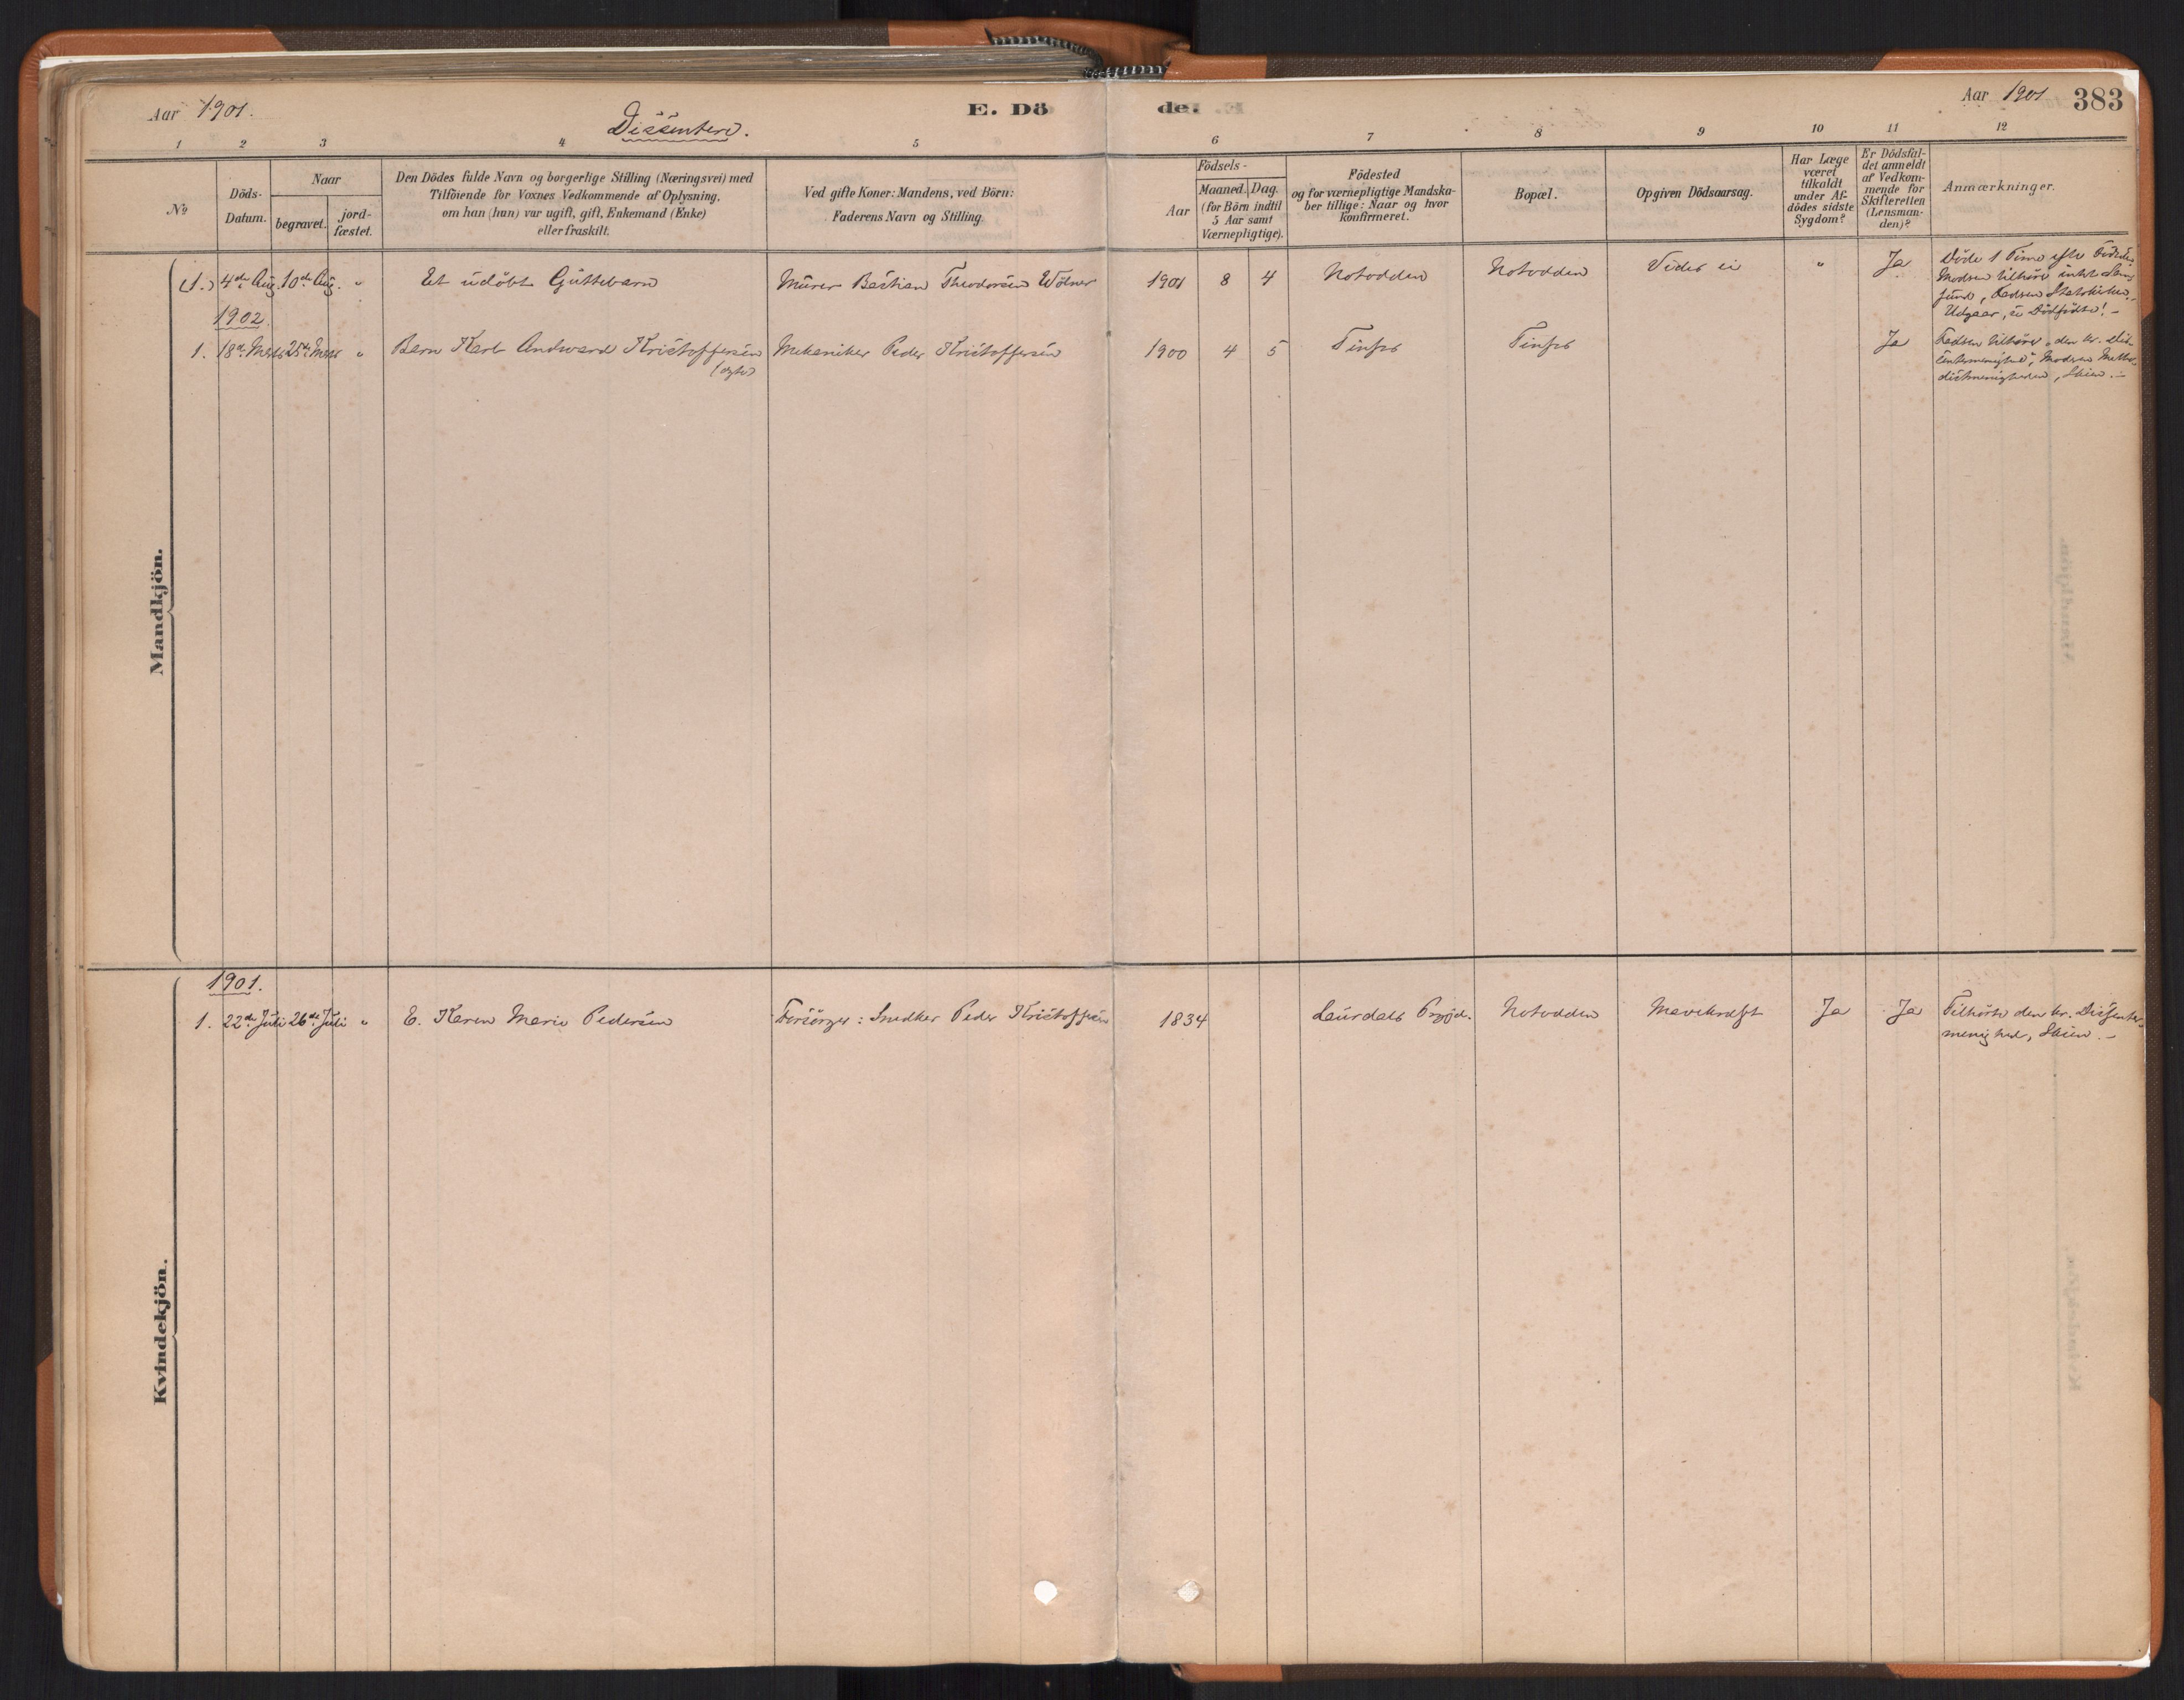 Aar 1901.
Dissentere.
E. Döde.
Aar 1901
383
1 2 3 4 5 6 7 8 9 10 11 12
No
Döds-
Datum.
Naar
begravet.
jord-
fæstet.
Den Dödes fulde Navn og borgerlige Stilling (Næringsvei) med
Tilföiende for Voxnes Vedkommende af Oplysning,
om han (hun) var ugift, gift, Enkemand (Enke)
eller fraskilt.
Ved gifte Koner: Mandens, ved Börn:
Faderens Navn og Stilling.
Födsels-
Aar
Maaned. Dag.
(for Börn indtil
5 Aar samt
Værnepligtige).
Födested
og for værnepligtige Mandska-
ber tillige: Naar og hvor
konfirmeret.
Bopæl.
Opgiven Dödsaarsag.
Har Læge
været
tilkaldt
under Af-
dödes sidste
Sygdom?
Er Dödsfal-
det anmeldt
af Vedkom-
mende for
Skifteretten
(Lensman-
den)?
Anmærkninger.
Mandkjön.
(1.) 4de Aug. 10de Aug. " Et udöbt Guttebarn Murer Bastian Theodorsen Wölner 1901 8 4 Notodden Notodden Vides ei " Ja
Döde 1 Time efter Födselen
Modren tilhörer intet Sam-
fund, Fadren Statskirken.
Udgaar, se Dödfödte! –
1902.
1. 18de Marts 25de Marts " Barn Karl Andvard Kristoffersen Mekaniker Peder Kristoffersen 1900 4 5 Tinfos Tinfos Ja
Fadren tilhörer den kr. Dis-
sentermenighed, Modren Metho-
distmenigheden, Skien. –
Kvindekjön.
1901.
1. 22de Juli 26de Juli " E. Karen Marie Pedersen Forsörger: Snedker Peder Kristoffersen 1834 Laurdals Prgjd. Notodden Mavekræft Ja Ja
Tilhörte den kr. Dissenter-
menighed, Skien. –